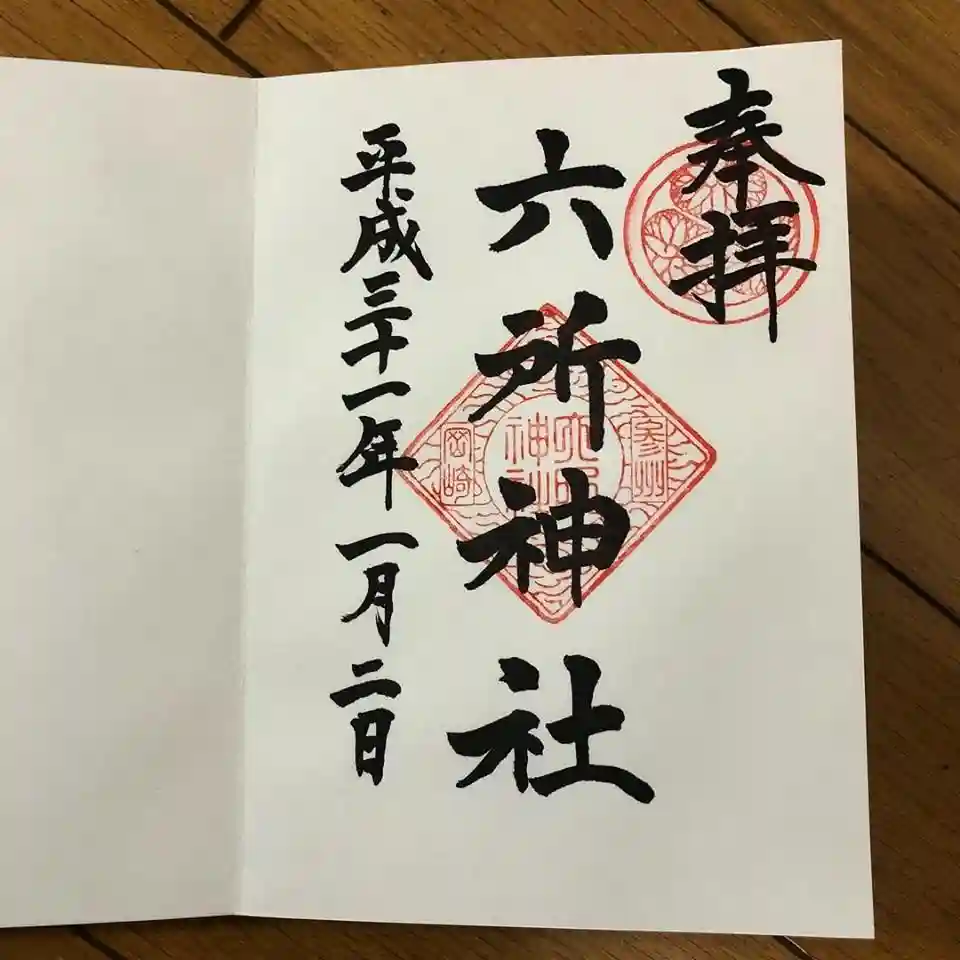 奉拝
六所神社
平成三十一年一月二日
参州
六所神社
岡崎